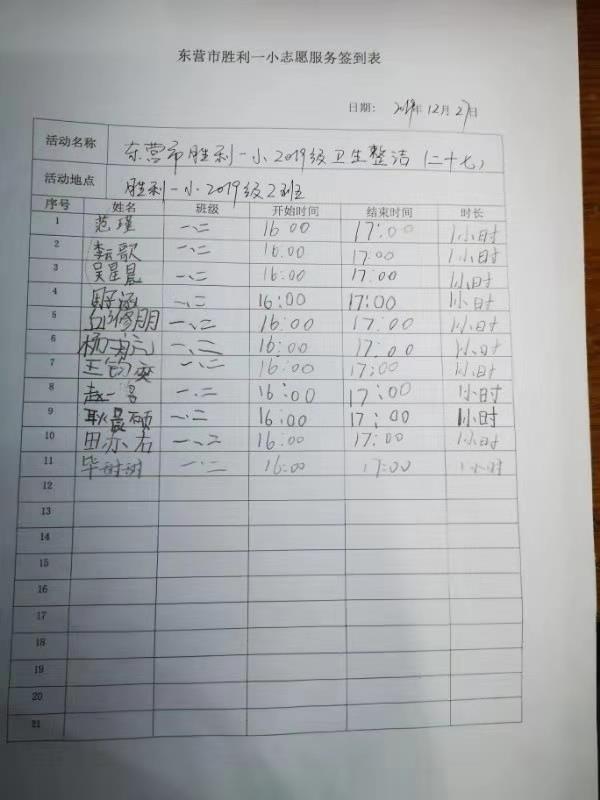 东营市胜利一小志愿服务签到表
日期: 2019年12月27日
活动名称 东营市胜利一小2019级卫生整洁(二十七)
活动地点 胜利一小2019级2班
序号 姓名 班级 开始时间 结束时间 时长
1 范瑾 一、二 16:00 17:00 1小时
2 李云歌 一、二 16:00 17:00 1小时
3 吴昱晨 一、二 16:00 17:00 1小时
4 周子涵 一、二 16:00 17:00 1小时
5 修朋 一、二 16:00 17:00 1小时
6 杨 一、二 16:00 17:00 1小时
7 王 一、二 16:00 17:00 1小时
8 赵一 一、二 16:00 17:00 1小时
9 耿晨硕 一、二 16:00 17:00 1小时
10 田亦右 一、二 16:00 17:00 1小时
11 毕树树 一、二 16:00 17:00 1小时
12
13
14
15
16
17
18
19
20
21